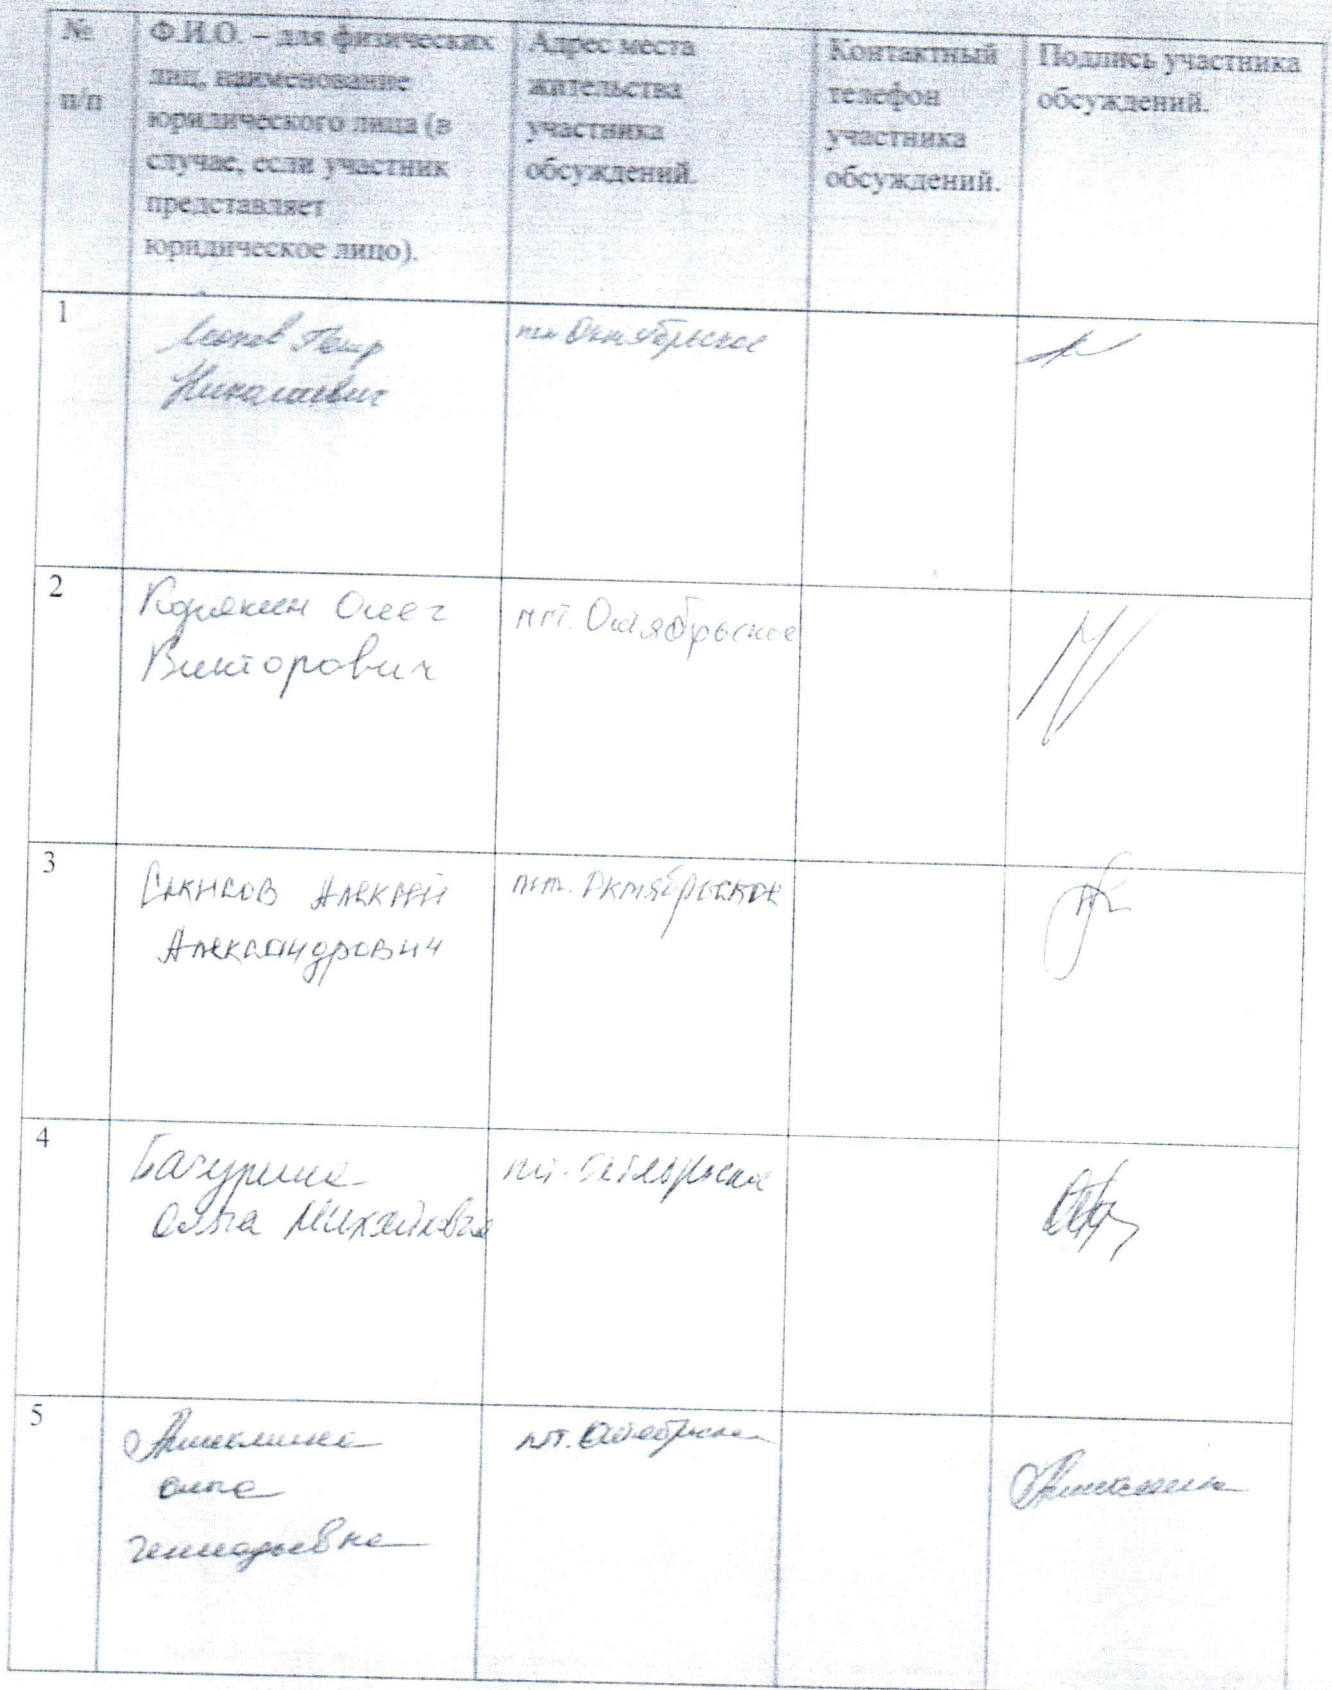 №
п/п
Ф.И.О. – для физических
лиц, наименование
юридического лица (в
случае, если участник
представляет
юридическое лицо).
Адрес места
жительства
участника
обсуждений.
Контактный
телефон
участника
обсуждений.
Подпись участника
обсуждений.
1
Петр
Николаевич
пгт Октябрьское
2
Олег
Викторович
пгт. Октябрьское
3
Алексей
Александрович
пгт. Октябрьское
4
Бачурина
Ольга Михайловна
пгт. Октябрьское
5
Ольга
Геннадьевна
пгт. Октябрьское